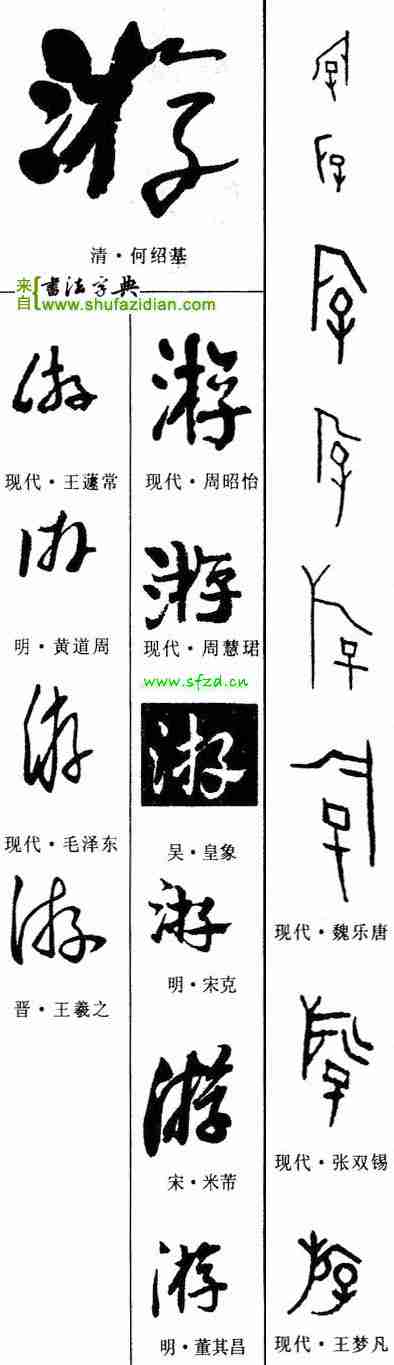 游
清·何绍基
来自{书法字典
www.shufazidian.com
游
现代·王蘧常
游
明·黄道周
游
现代·毛泽东
游
晋·王羲之
游
现代·周昭怡
游
现代·周慧珺
www.sfzd.cn
游
吴·皇象
游
明·宋克
游
宋·米芾
游
明·董其昌
现代·魏乐唐
现代·张双锡
现代·王梦凡